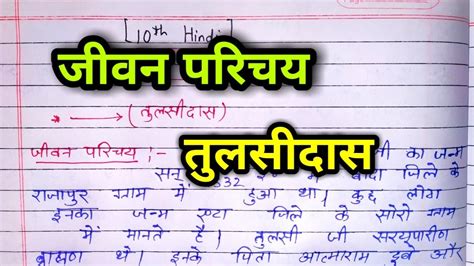 [10th Hindi]
जीवन परिचय
(तुलसीदास)
तुलसीदास
जीवन परिचय :- का जन्म
सन् 32 बांदा जिले के
राजापुर ग्राम में हुआ था। कुछ लोग
इनका जन्म एटा जिले के सोरो ग्राम
में मानते है। तुलसी जी सरयूपारीण
ब्राह्मण थे। इनके पिता आत्माराम दुबे और